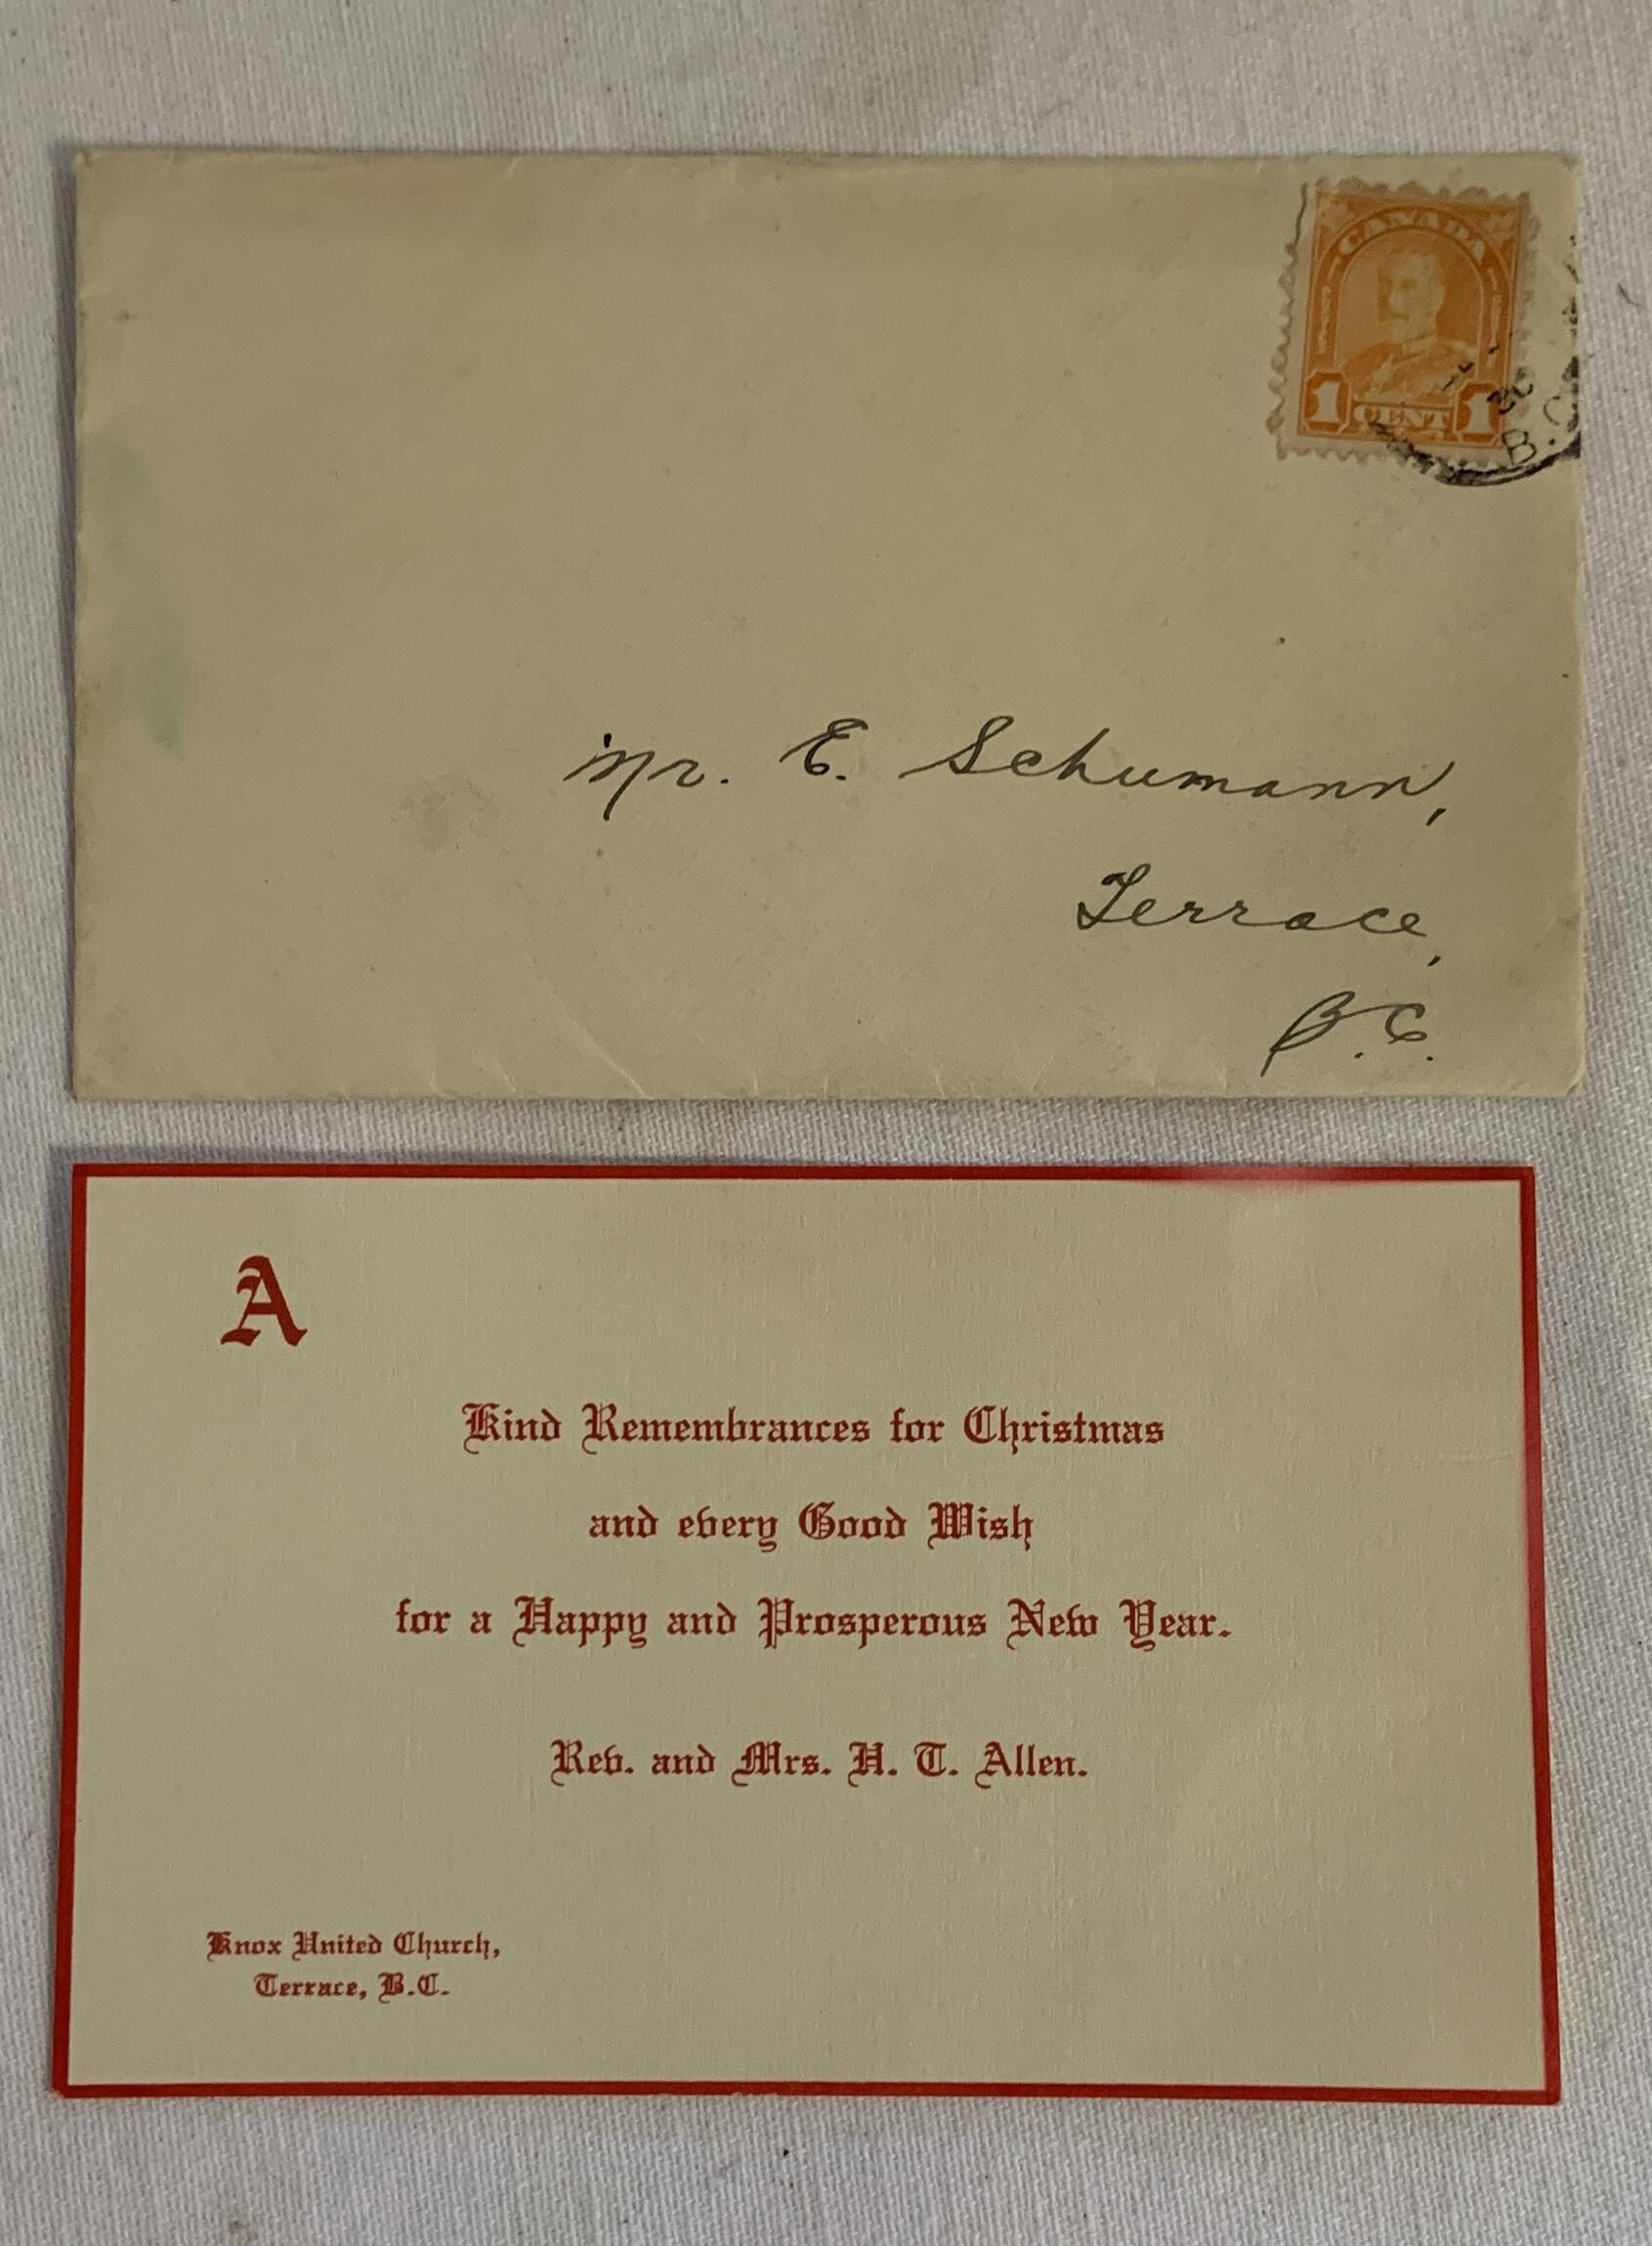 CANADA
1 CENT 1
30
B.C
Mr. E. Schumann,
Terrace,
B.C.
A
Kind Remembrances for Christmas
and every Good Wish
for a Happy and Prosperous New Year.
Rev. and Mrs. H. T. Allen.
Knox United Church,
Terrace, B.C.